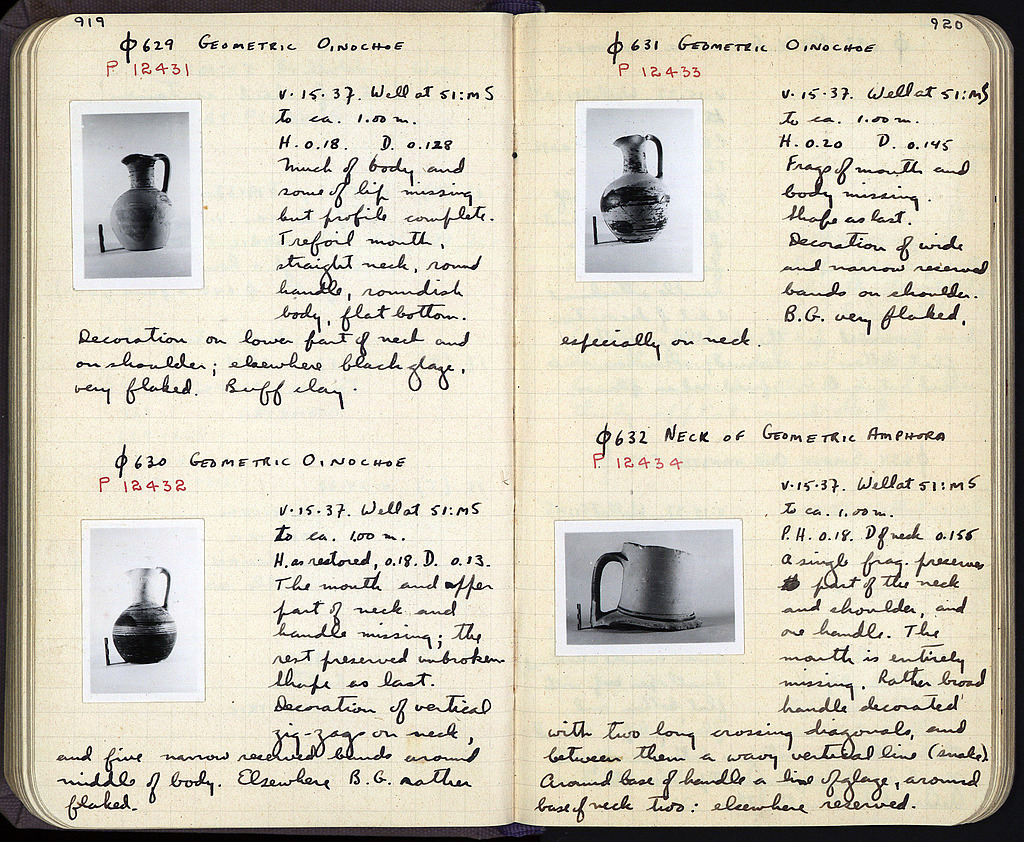 919
φ629 GEOMETRIC OINOCHOE
P 12431
V·15·37. Well at 51:MS
to ca. 1.00 m.
H. 0.18. D. 0.128
Much of body and
some of lip missing
but profile complete.
Trefoil mouth,
straight neck, round
handle, roundish
body, flat bottom.
Decoration on lower part of neck and
on shoulder; elsewhere black glaze,
very flaked. Buff clay.
φ630 GEOMETRIC OINOCHOE
P 12432
V·15·37. Well at 51:MS
to ca. 1.00 m.
H. as restored, 0.18. D. 0.13.
The mouth and upper
part of neck and
handle missing; the
rest preserved unbroken
Shape as last.
Decoration of vertical
zig-zags on neck,
and five narrow reserved bands around
middle of body. Elsewhere B.G. rather
flaked.
920
φ631 GEOMETRIC OINOCHOE
P 12433
V·15·37. Well at 51:MS
to ca. 1.00 m.
H. 0.20 D. 0.145
Frags of mouth and
body missing.
Shape as last.
Decoration of wide
and narrow reserved
bands on shoulder.
B.G. very flaked,
especially on neck.
φ632 NECK OF GEOMETRIC AMPHORA
P 12434
V·15·37. Well at 51:MS
to ca. 1.00 m.
P.H. 0.18. D of neck 0.155
A single frag. preserves
part of the neck
and shoulder, and
one handle. The
mouth is entirely
missing. Rather broad
handle decorated
with two long crossing diagonals, and
between them a wavy vertical line (snake).
Around base of handle a line of glaze, around
base of neck two: elsewhere reserved.